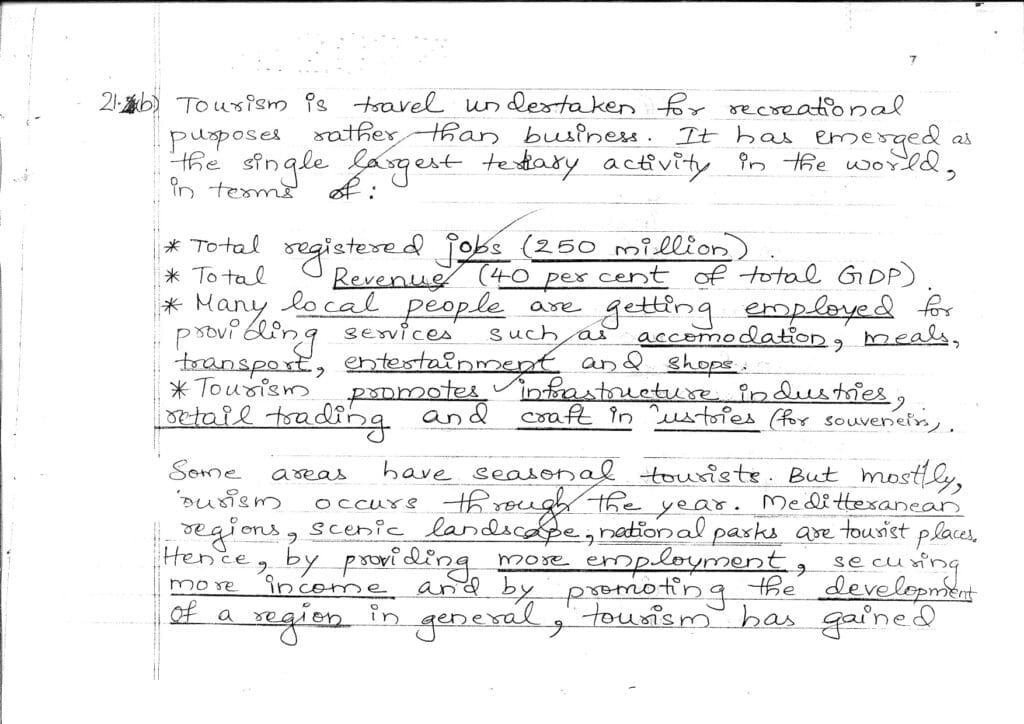 7
21. b) Tourism is travel undertaken for recreational
purposes rather than business. It has emerged as
the single largest tertiary activity in the world,
in terms of :
* Total registered jobs (250 million)
* Total Revenue (40 per cent of total GDP)
* Many local people are getting employed for
providing services such as accomodation, meals,
transport, entertainment and shops.
* Tourism promotes infrastructure industries,
retail trading and craft in ustries (for souveneirs).
Some areas have seasonal tourists. But mostly,
ourism occurs through the year. Meditteranean
regions, scenic landscape, national parks are tourist places.
Hence, by providing more employment, securing
more income and by promoting the development
of a region in general, tourism has gained